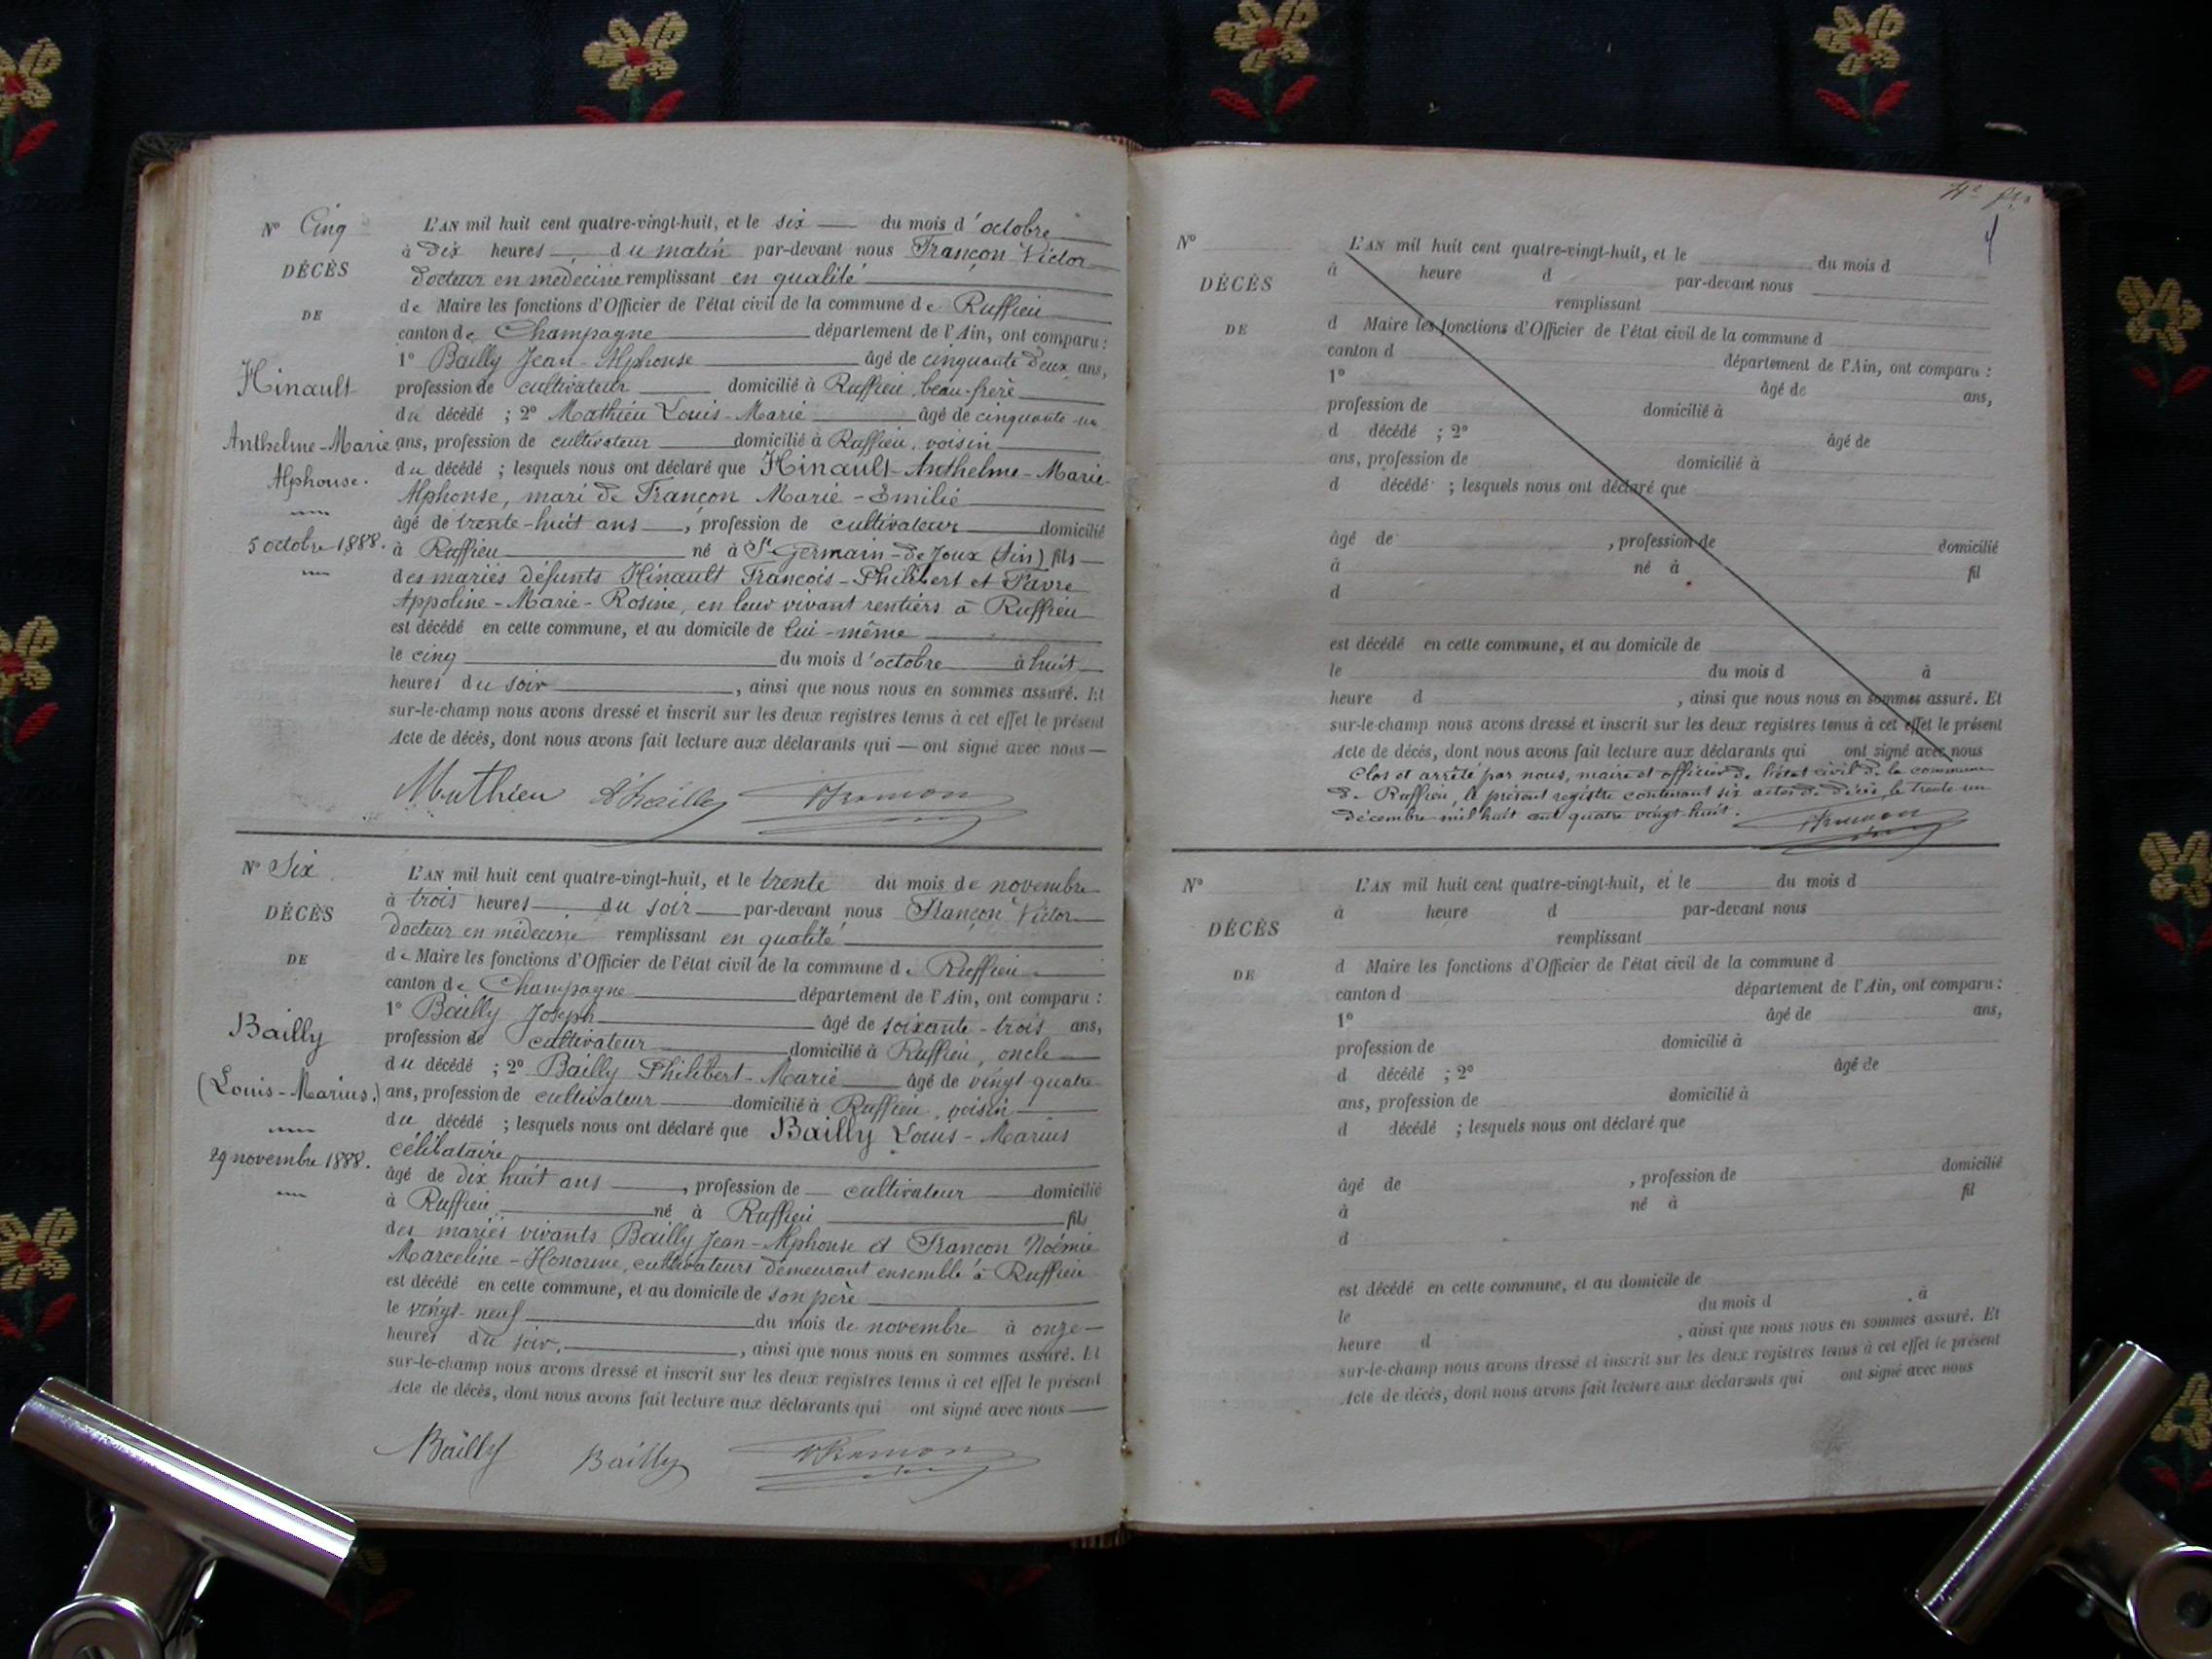 Nº Cinq
DÉCÈS
DE
Hinault
Anthelme-Marie
Alphonse.
5 octobre 1888.
L'AN mil huit cent quatre-vingt-huit, et le six du mois d'octobre
à dix heures du matin par-devant nous Françon Victor
docteur en médecine remplissant en qualité
de Maire les fonctions d'Officier de l'état civil de la commune de Ruffieu
canton de Champagne département de l'Ain, ont comparu :
1º Bailly Jean-Alphonse âgé de cinquante deux ans,
profession de cultivateur domicilié à Ruffieu, beau-frère
du décédé ; 2º Mathieu Louis-Marie âgé de cinquante-un
ans, profession de cultivateur domicilié à Ruffieu, voisin
du décédé ; lesquels nous ont déclaré que Hinault-Anthelme-Marie-
Alphonse, mari de Françon Marie-Emilie
âgé de trente-huit ans, profession de cultivateur domicilié
à Ruffieu né à St Germain-de-Joux (Ain) fils
des mariés défunts Hinault François-Philibert et Favre
Appoline-Marie-Rosine, en leur vivant rentiers à Ruffieu
est décédé en cette commune, et au domicile de lui-même
le cinq du mois d'octobre à huit
heures du soir, ainsi que nous nous en sommes assuré. Et
sur-le-champ nous avons dressé et inscrit sur les deux registres tenus à cet effet le présent
Acte de décès, dont nous avons fait lecture aux déclarants qui — ont signé avec nous —
Mathieu
Nº Six
DÉCÈS
DE
Bailly
(Louis-Marius.)
29 novembre 1888.
L'AN mil huit cent quatre-vingt-huit, et le trente du mois de novembre
à trois heures du soir par-devant nous Françon Victor
docteur en médecine remplissant en qualité
de Maire les fonctions d'Officier de l'état civil de la commune de Ruffieu
canton de Champagne département de l'Ain, ont comparu :
1º Bailly Joseph âgé de soixante-trois ans,
profession de cultivateur domicilié à Ruffieu, oncle
du décédé ; 2º Bailly Philibert-Marie âgé de vingt-quatre
ans, profession de cultivateur domicilié à Ruffieu, voisin
du décédé ; lesquels nous ont déclaré que Bailly Louis-Marius
célibataire
âgé de dix huit ans, profession de cultivateur domicilié
à Ruffieu né à Ruffieu fils
des mariés vivants Bailly Jean-Alphonse et Françon Noémie
Marceline-Honorine, cultivateurs demeurant ensemble à Ruffieu
est décédé en cette commune, et au domicile de son père
le vingt-neuf du mois de novembre à onze
heures du soir, ainsi que nous nous en sommes assuré. Et
sur-le-champ nous avons dressé et inscrit sur les deux registres tenus à cet effet le présent
Acte de décès, dont nous avons fait lecture aux déclarants qui ont signé avec nous
Bailly Bailly
Nº
DÉCÈS
DE
L'AN mil huit cent quatre-vingt-huit, et le du mois d
à heure d par-devant nous
remplissant
d Maire les fonctions d'Officier de l'état civil de la commune d
canton d département de l'Ain, ont comparu :
1º âgé de ans,
profession de domicilié à
d décédé ; 2º âgé de
ans, profession de domicilié à
d décédé ; lesquels nous ont déclaré que
âgé de , profession de domicilié
à né à fil
d
est décédé en cette commune, et au domicile de
le du mois d à
heure d , ainsi que nous nous en sommes assuré. Et
sur-le-champ nous avons dressé et inscrit sur les deux registres tenus à cet effet le présent
Acte de décès, dont nous avons fait lecture aux déclarants qui ont signé avec nous
Clos et arrêté par nous, maire et officier de l'état civil de la commune
de Ruffieu, le présent registre contenant six actes de décès, le trente un
décembre mil huit cent quatre vingt-huit.
Nº
DÉCÈS
DE
L'AN mil huit cent quatre-vingt-huit, et le du mois d
à heure d par-devant nous
remplissant
d Maire les fonctions d'Officier de l'état civil de la commune d
canton d département de l'Ain, ont comparu :
1º âgé de ans,
profession de domicilié à
d décédé ; 2º âgé de
ans, profession de domicilié à
d décédé ; lesquels nous ont déclaré que
âgé de , profession de domicilié
à né à fil
d
est décédé en cette commune, et au domicile de
le du mois d à
heure d , ainsi que nous nous en sommes assuré. Et
sur-le-champ nous avons dressé et inscrit sur les deux registres tenus à cet effet le présent
Acte de décès, dont nous avons fait lecture aux déclarants qui ont signé avec nous